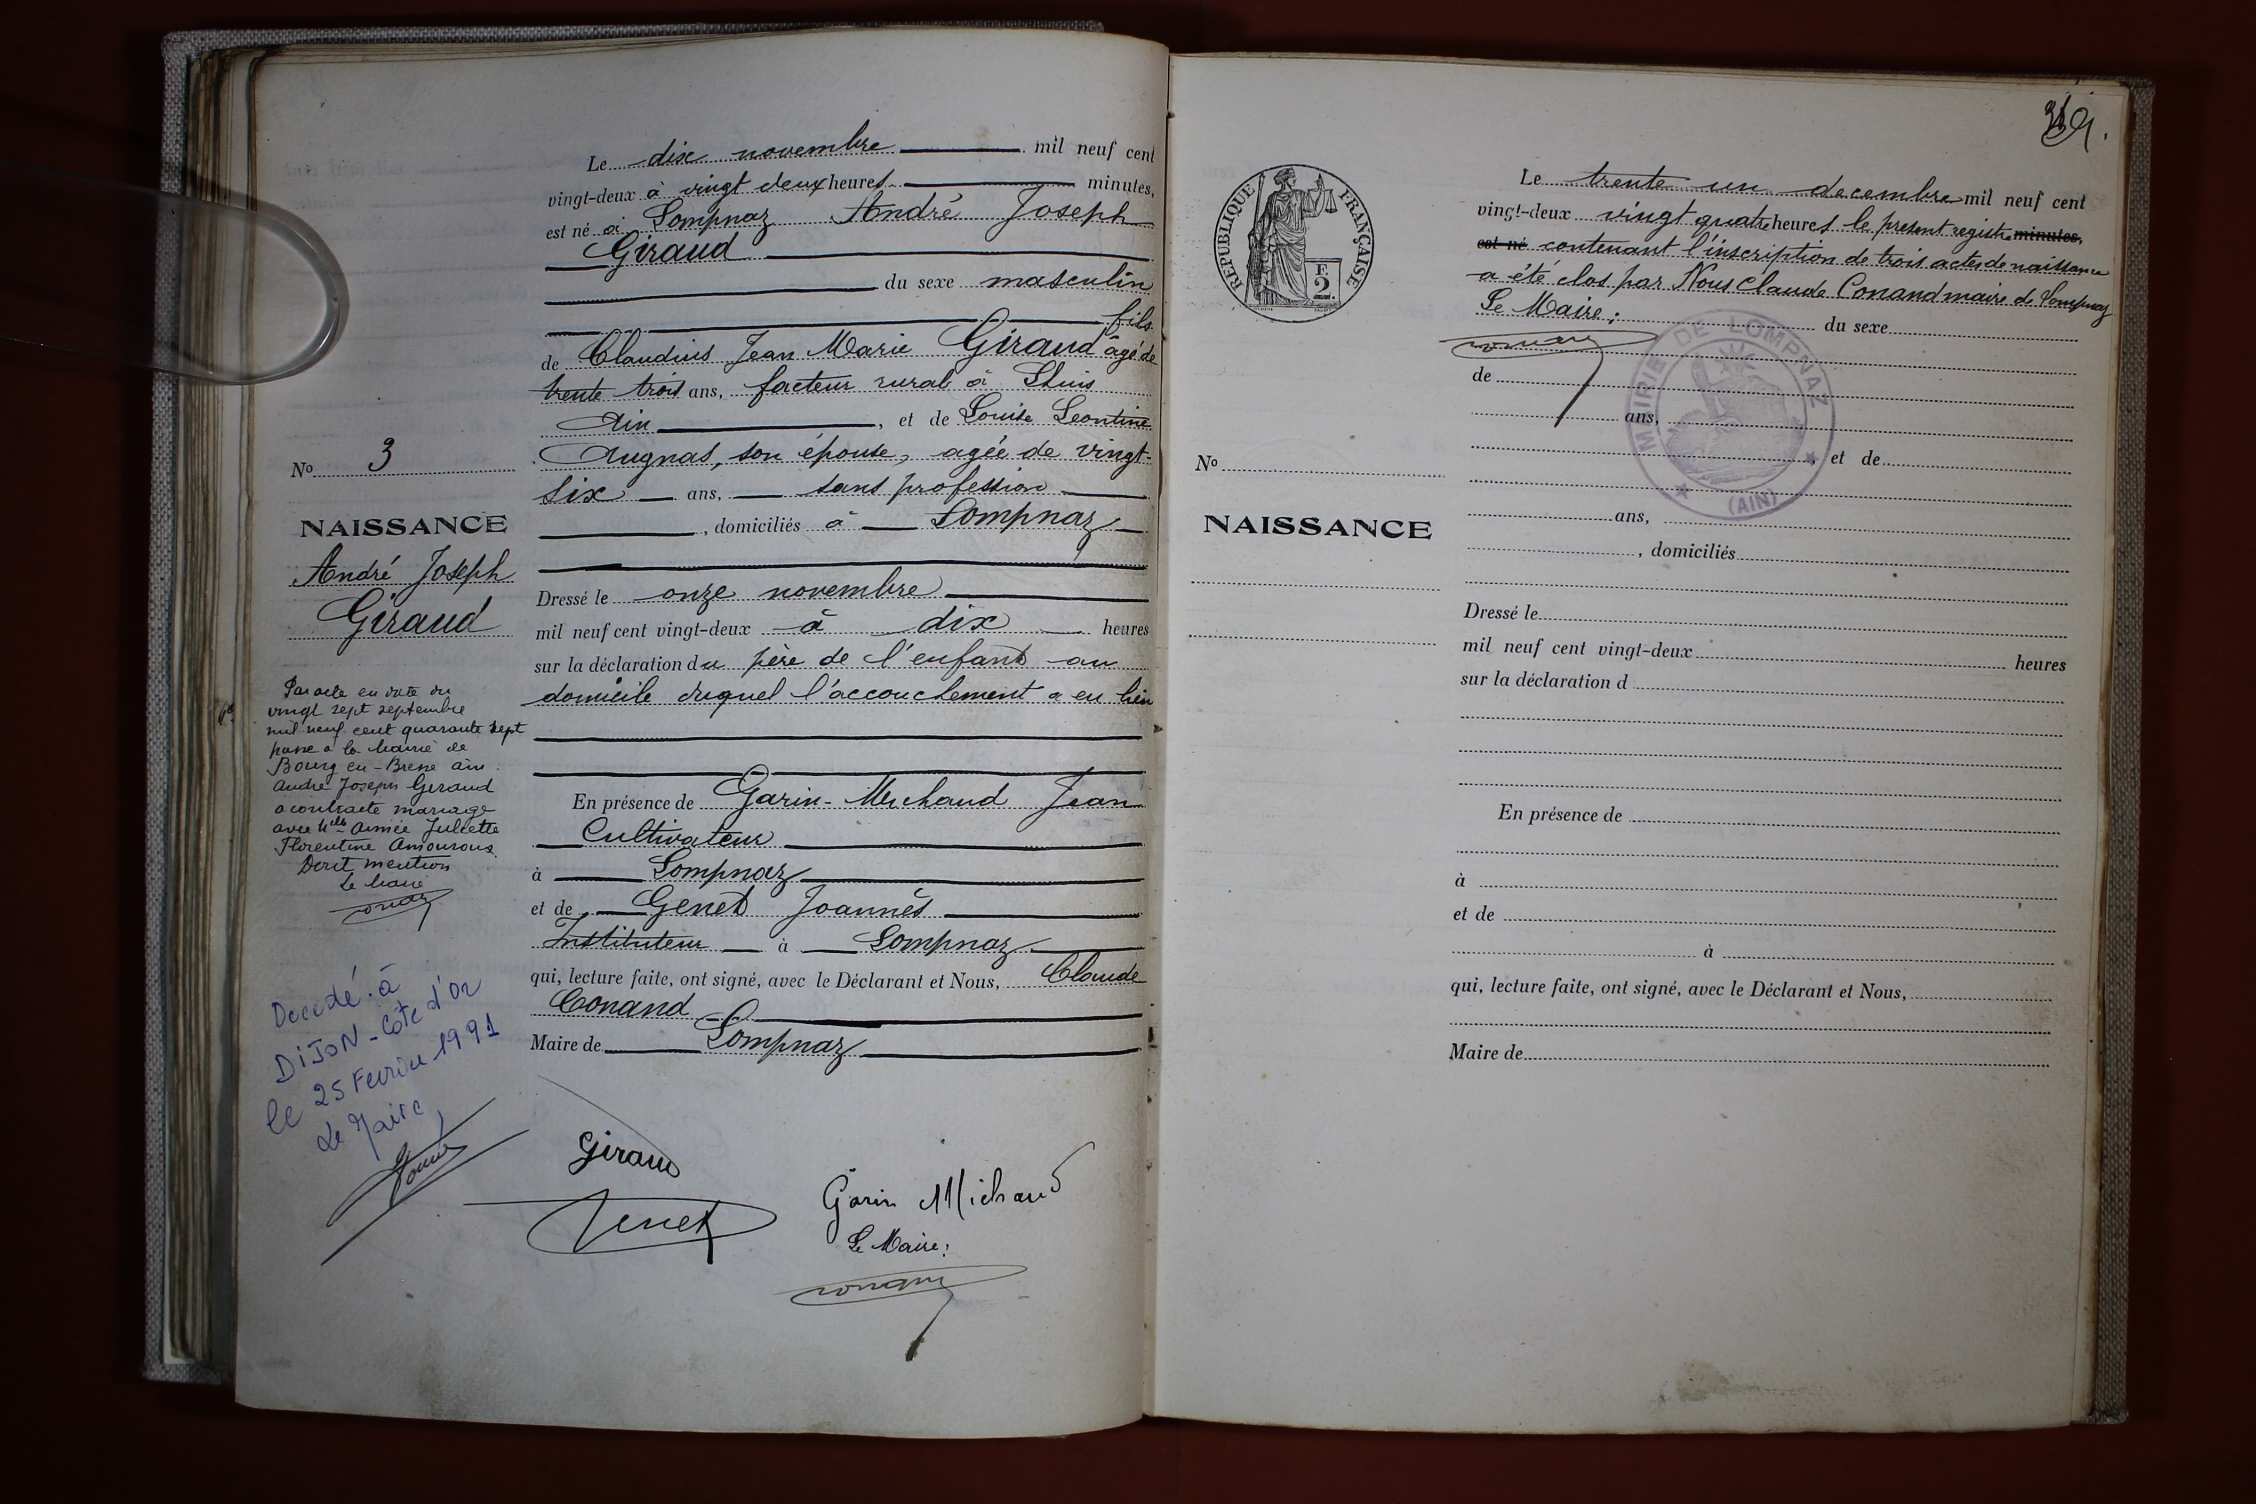 Le dix novembre mil neuf cent
vingt-deux à vingt deux heures minutes,
est né à Lompnaz André Joseph
Giraud
du sexe masculin
fils
de Claudius Jean Marie Giraud âgé de
trente trois ans, facteur rural à Lhuis
Ain, et de Louise Leontine
Augnas, son épouse, agée de vingt-
six ans, sans profession
, domiciliés à Lompnaz
Dressé le onze novembre
mil neuf cent vingt-deux à dix heures
sur la déclaration du père de l'enfant au
domicile duquel l'accouchement a eu lieu
En présence de Garin-Michaud Jean
Cultivateur
à Lompnaz
et de Genet Joannès
Instituteur à Lompnaz
qui, lecture faite, ont signé, avec le Déclarant et Nous, Claude
Conand
Maire de Lompnaz
Giraud
Genet
Garin Michaud
Le Maire:
Conand
No 3
NAISSANCE
André Joseph
Giraud
Par acte en date du
vingt sept septembre
mil neuf cent quarante sept
passé à la mairie de
Bourg en-Bresse ain
André Joseph Geraud
a contracté mariage
avec Mlle Aimée Juliette
Florentine Amourous
Dont mention
Le Maire
Conand
Decedé à
DIJON-Côte d'Or
le 25 Fevrier 1991
Le Maire
RÉPUBLIQUE FRANÇAISE
2
Le trente un decembre mil neuf cent
vingt-deux vingt quatre heures le present registre minutes,
est né contenant l'inscription de trois actes de naissance
a été clos par Nous Claude Conand maire de Lompnaz
Le Maire: du sexe
Conand
de
ans,
, et de
ans,
, domiciliés
Dressé le
mil neuf cent vingt-deux heures
sur la déclaration d
En présence de
à
et de
à
qui, lecture faite, ont signé, avec le Déclarant et Nous,
Maire de
MAIRIE DE LOMPNAZ
(AIN)
No
NAISSANCE